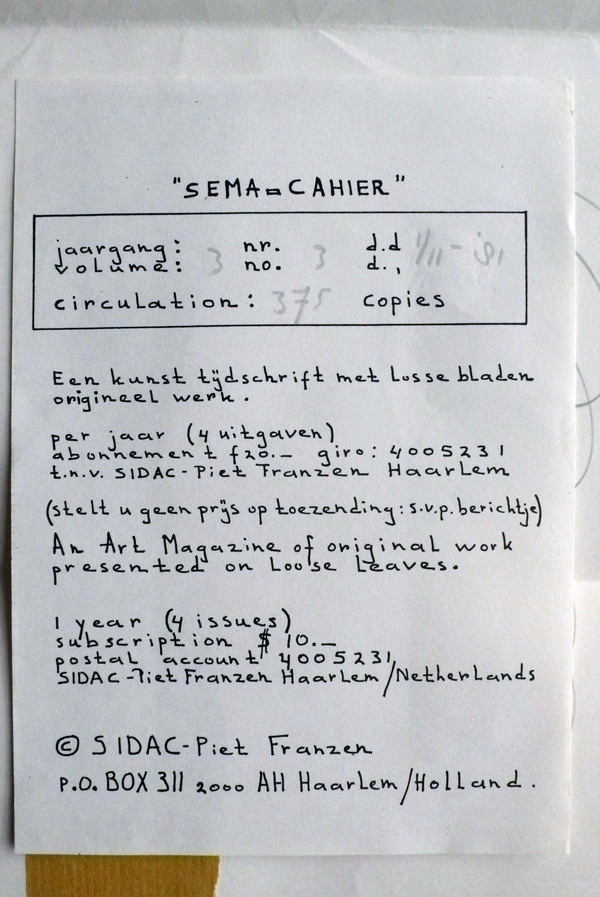 "SEMA=CAHIER"
jaargang: 3 nr. 3 d.d 1/11-'81
volume: no. d.,
circulation: 375 copies
Een kunst tijdschrift met losse bladen
origineel werk.
per jaar (4 uitgaven)
abonnement f20.- giro: 4005231
t.n.v. SIDAC-Piet Franzen Haarlem
(stelt u geen prijs op toezending: s.v.p. berichtje)
An Art Magazine of original work
presented on Loose Leaves.
1 year (4 issues)
subscription $ 10.-
postal account 4005231
SIDAC-Piet Franzen Haarlem/Netherlands
© SIDAC-Piet Franzen
P.O. BOX 311 2000 AH Haarlem/Holland.